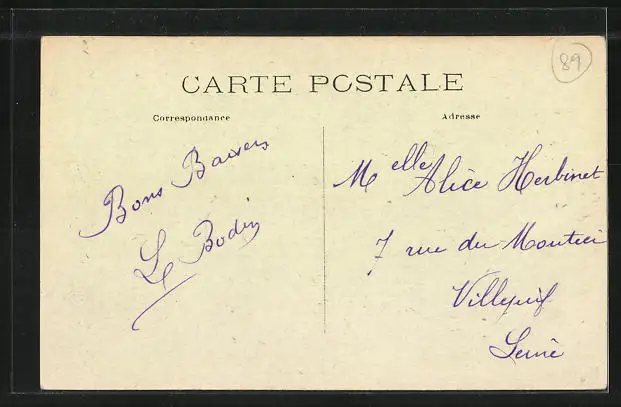 CARTE POSTALE
89
Correspondance
Adresse
Bons Baisers
L Bodin
Melle Alice Herbinet
7 rue du Moutier
Villejuif
Seine